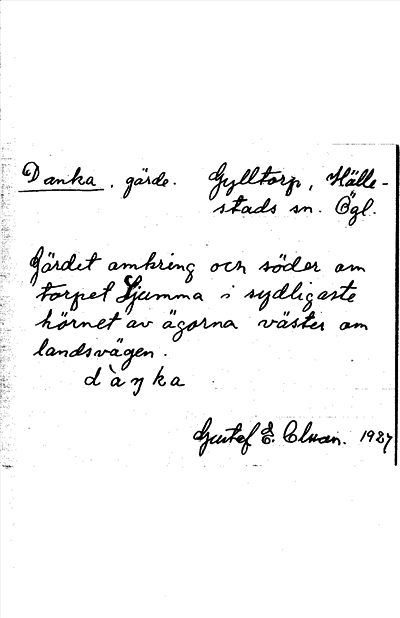 Danka, gärde. Gylltorp, Hälle-
stads sn. Ögl.
Gärdet omkring och söder om
torpet Ljumma i sydligaste
hörnet av ägorna väster om
landsvägen.
dàŋka
Gustaf E:. Olsson. 1927